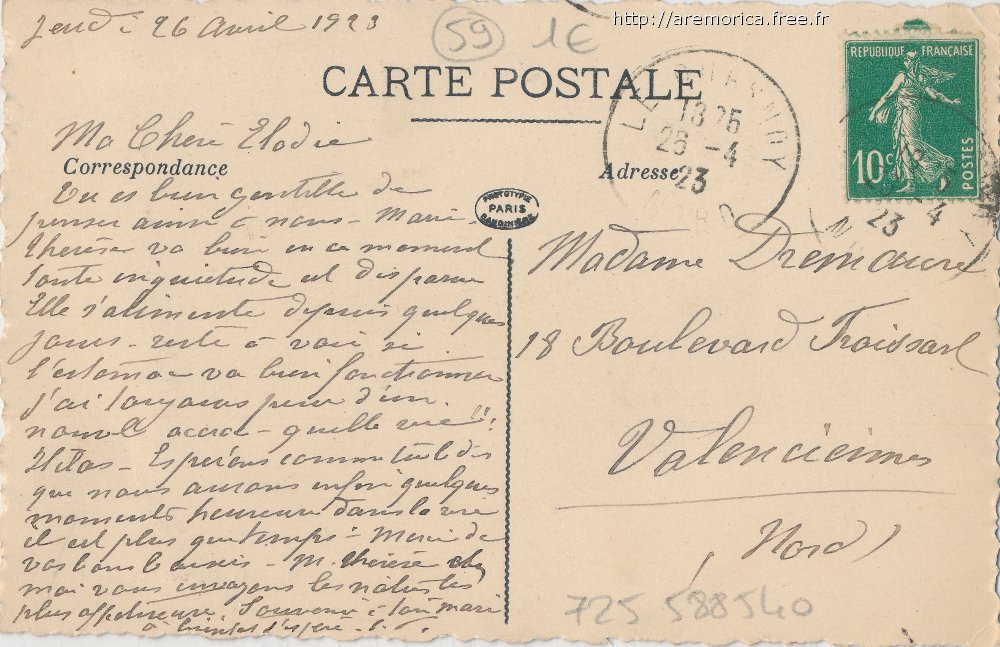 http://aremorica.free.fr
Jeudi 26 avril 1923
59 1€
CARTE POSTALE
REPUBLIQUE FRANÇAISE
10c
POSTES
LE QUESNOY
NORD
1825
26 -4
23
Ma Chère Elodie
Correspondance
Adresse
PROTOTYPIE
PARIS
Tu es bien gentille de
penser ainsi à nous - Marie
Thérèse va bien en ce moment
toute inquiétude est disparue
Elle s'alimente depuis quelques
jours - reste à voir si
l'estomac va bien fonctionner
J'ai toujours peur d'un
nouvel accroc - quelle vie !!
Hélas - Espérons comme tu le dis
que nous aurons enfin quelques
moments heureux dans la vie
il est plus que temps - Merci de
vos bons baisers - M. Thérèse et
moi vous envoyons les nôtres les
plus affectueux. Souvenir à ton mari
à bientôt j'espère
Madame Dremaure
18 Boulevard Froissart
Valenciennes
Nord
23 4
725 588540